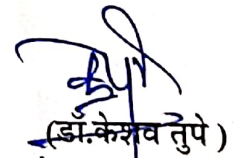 (डॉ.केशव तुपे )